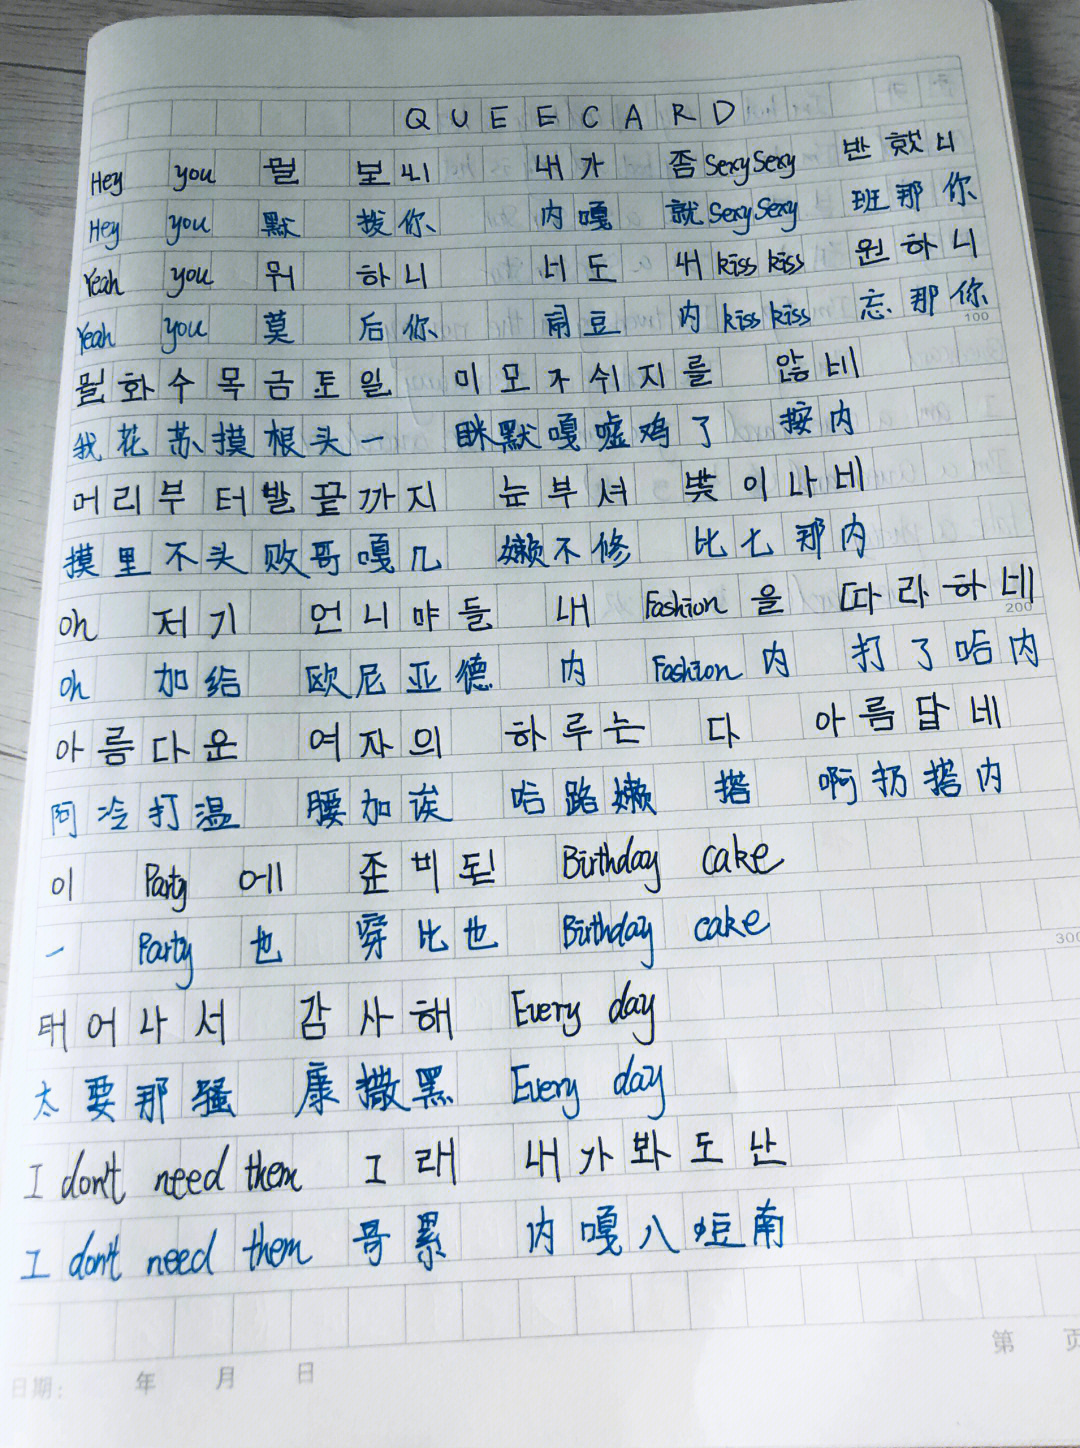 QUEECARD
Hey you 뭘 보니 내가 좀 Sexy Sexy 반했니
Hey you 默 拨你 内嘎 就 Sexy Sexy 班那你
Yeah you 뭐 하니 너도 내 kiss kiss 원하니
Yeah you 莫 后你 闹豆 内 kiss kiss 忘那你
100
월화수목금토일 미모가쉬지를 않네
我花苏摸根头一 眯默嘎嘘鸡了 按内
머리부터발끝까지 눈부셔 빛이나네
摸里不头败哥嘎几 嫩不修 比七那内
oh 저기 언니야들 내 Fashion 을 따라하네
200
oh 加给 欧尼亚德 内 Fashion 内 打了哈内
아름다운 여자의 하루는 다 아름답네
阿冷打温 腰加诶 哈路嫩 搭 啊扔搭内
이 Party 에 준비된 Birthday cake
一 Party 也 穿比也 Birthday cake
300
태어나서 감사해 Every day
太要那骚 康撒黑 Every day
I don't need them 그래 내가봐도 난
I don't need them 哥累 内嘎八 南
日期: 年 月 日 第 页